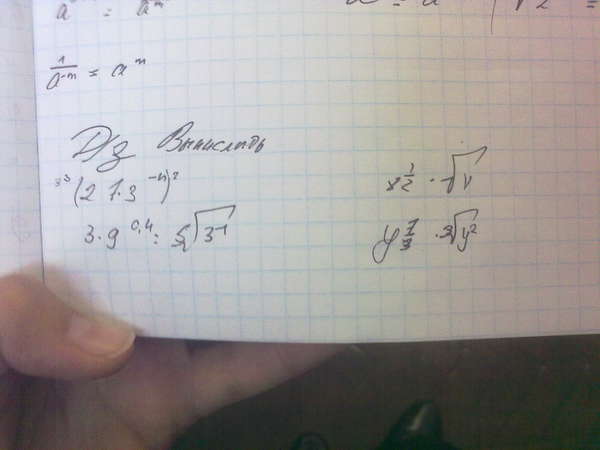 1/a⁻ⁿ = aⁿ
Д/з Вычислить
3³(27·3⁻⁴)²
3·9^0,4 : ⁵√3⁻¹
x^1/2 · √x
y^7/3 · ³√y²